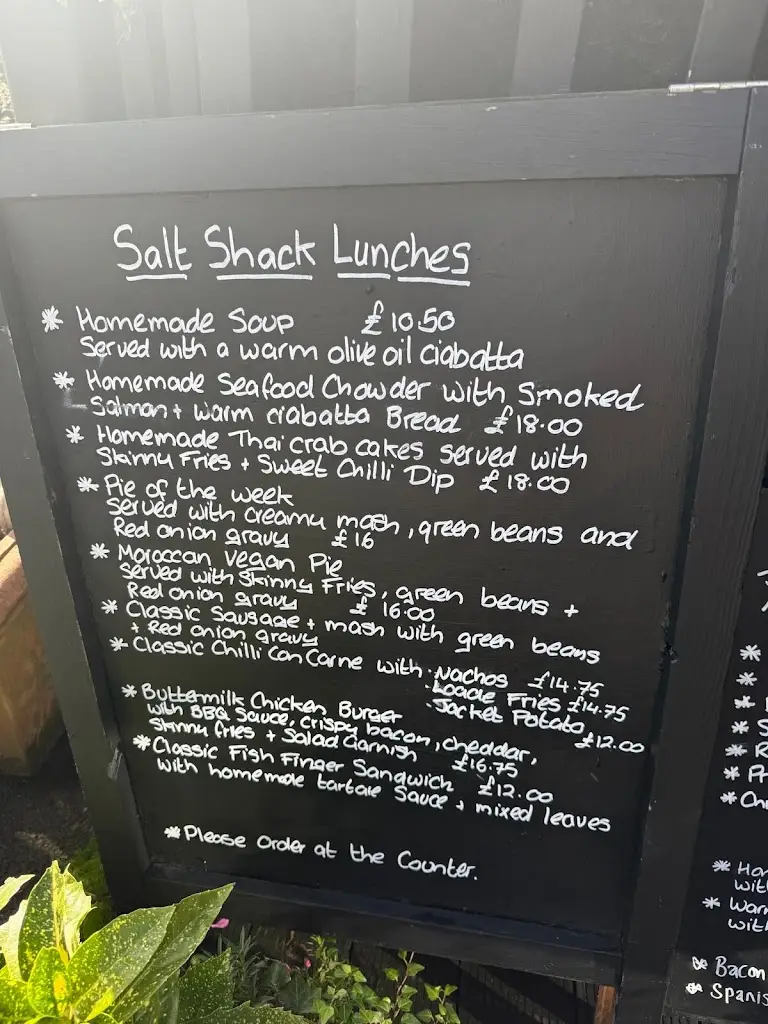 Salt Shack Lunches
* Homemade Soup £10.50
Served with a warm olive oil ciabatta
* Homemade Seafood Chowder with Smoked
Salmon + warm ciabatta Bread £18.00
* Homemade Thai crab cakes served with
Skinny Fries + Sweet Chilli Dip £18.00
* Pie of the week
Served with creamy mash, green beans and
Red onion gravy £16
* Moroccan Vegan Pie
Served with Skinny Fries, green beans +
Red onion gravy £16.00
* Classic Sausage + mash with green beans
+ Red onion gravy
* Classic Chilli Con Carne with · Nachos £14.75
· Loade Fries £14.75
· Jacket Potato £12.00
* Buttermilk Chicken Burger
with BBQ Sauce, crispy bacon, cheddar,
Skinny fries + Salad Garnish £16.75
* Classic Fish Finger Sandwich £12.00
with homemade tartare Sauce + mixed leaves
* Please order at the Counter.
* Bacon
* Spanis